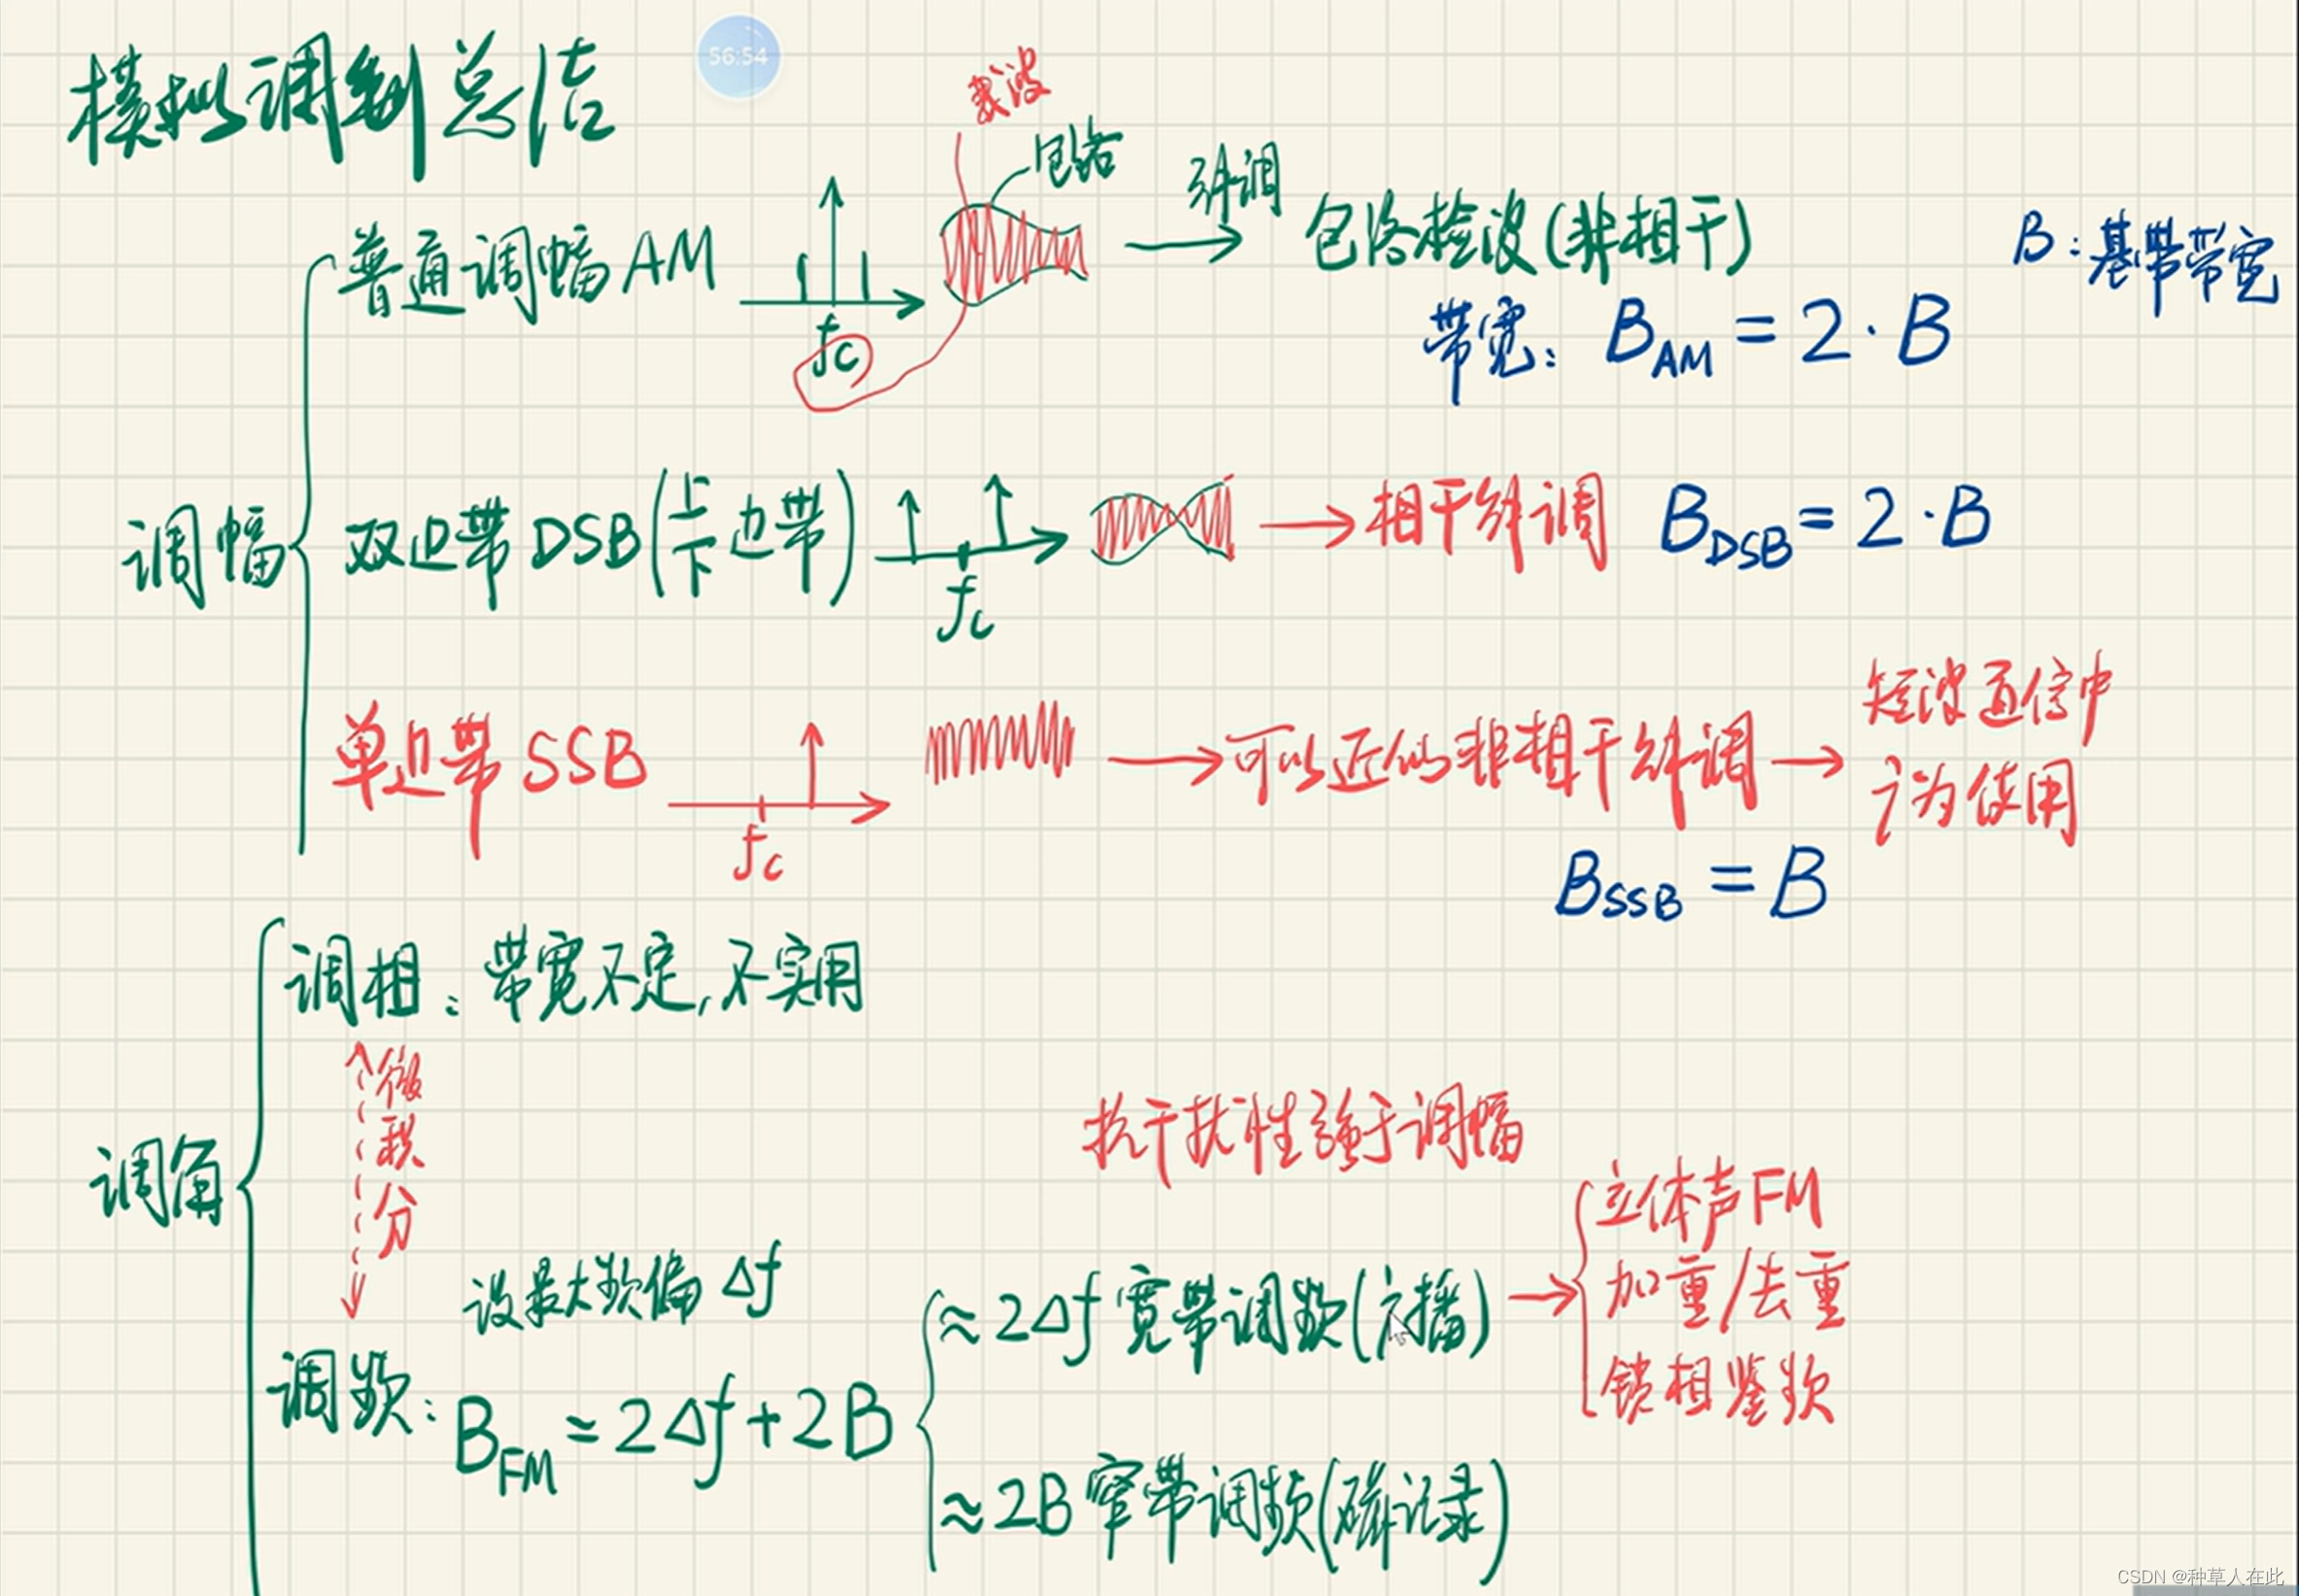 56:54
模拟调制总结
载波
包络
普通调幅AM
fc
解调
包络检波(非相干)
B:基带带宽
带宽: B_AM = 2·B
调幅
双边带DSB(上下边带)
fc
相干解调
B_DSB = 2·B
单边带SSB
fc
可以近似非相干解调
短波通信中
广为使用
B_SSB = B
调角
调相:带宽不定,不实用
微积分
抗干扰性强于调幅
设最大频偏 Δf
调频: B_FM ≈ 2Δf+2B
≈2Δf 宽带调频(广播)
立体声FM
加重/去重
锁相鉴频
≈2B 窄带调频(磁记录)
CSDN @种草人在此